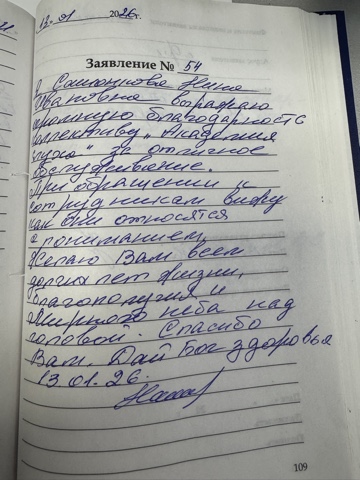 13.01 2026г.
Заявление № 54
Я Сашонкова Нина
Ивановна выражаю
огромную благодарность
коллективу „Академия
слуха" за отличное
обслуживание.
При обращении к
сотрудникам вижу
как они относятся
с пониманием.
Желаю Вам всем
долгих лет жизни,
благополучия и
мирного неба над
головой. Спасибо
Вам. Дай Бог здоровья
13.01.26.
109